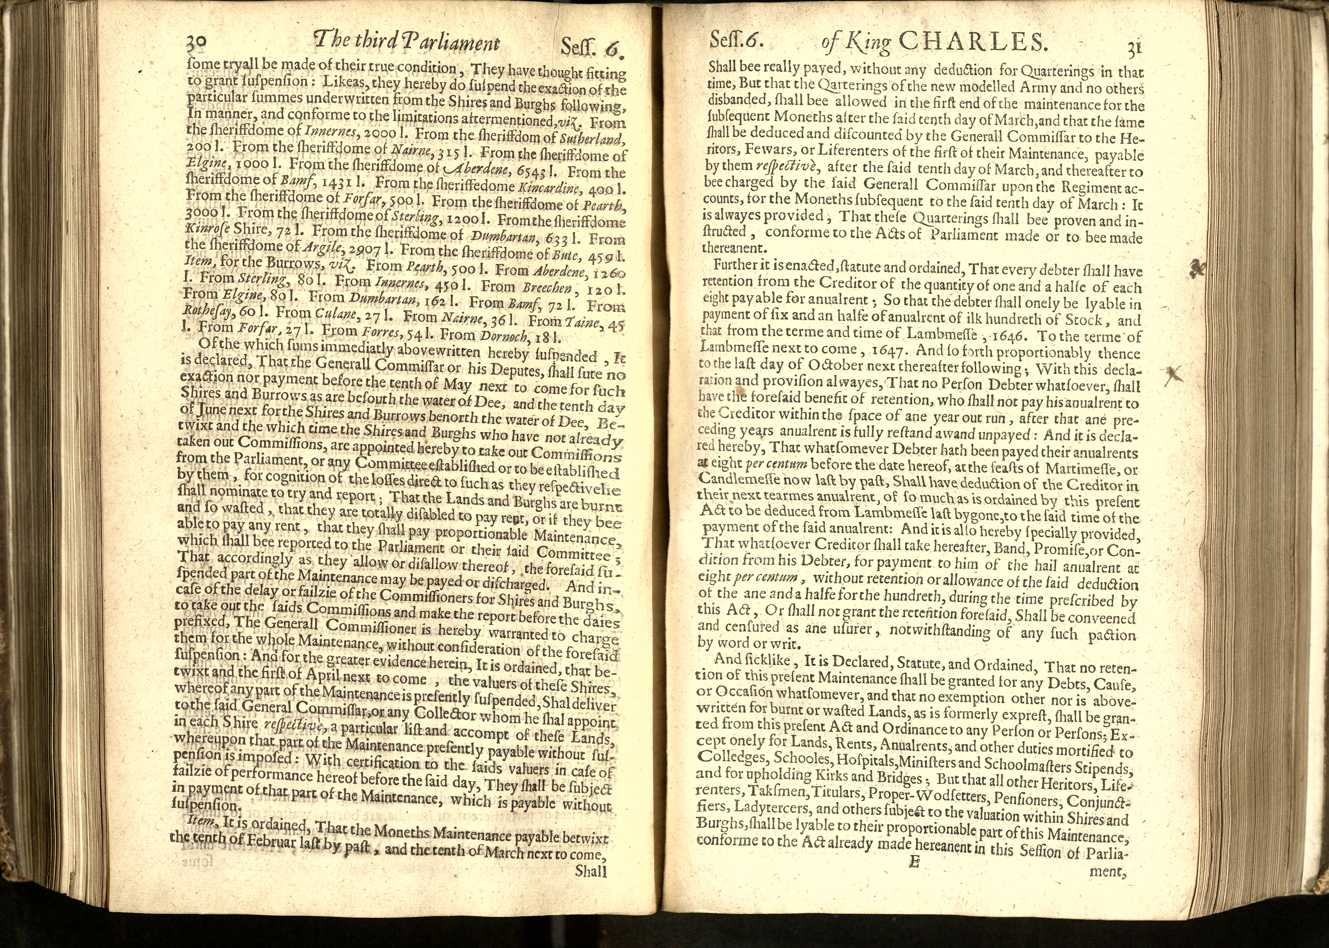 30 The third Parliament Seſſ. 6.
ſome tryall be made of their true condition, They have thought fitting
to grant ſuſpenſion: Likeas, they hereby do ſuſpend the exaction of the
particular ſummes underwritten from the Shires and Burghs following,
In manner, and conforme to the limitations aftermentioned, viz. From
the ſheriffdome of Innernes, 2000 l. From the ſheriffdom of Sutherland,
200 l. From the ſheriffdome of Nairne, 315 l. From the ſheriffdome of
Elgine, 1000 l. From the ſheriffdome of Aberdene, 6543 l. From the
ſheriffdome of Bamf, 1431 l. From the ſheriffedome Kincardine, 400 l.
From the ſheriffdome of Forfar, 500 l. From the ſheriffdome of Pearth,
3000 l. From the ſheriffdome of Sterling, 1200 l. From the ſheriffdome
Kinroſe Shire, 72 l. From the ſheriffdome of Dumbartan, 633 l. From
the ſheriffdome of Argile, 2907 l. From the ſheriffdome of Bute, 459 l.
Item, for the Burrows, viz. From Pearth, 500 l. From Aberdene, 1260
l. From Sterling, 80 l. From Innernes, 450 l. From Breechen, 120 l.
From Elgine, 80 l. From Dumbartan, 162 l. From Bamf, 72 l. From
Rotheſay, 60 l. From Culane, 27 l. From Nairne, 36 l. From Taine, 45
l. From Forfar, 27 l. From Forres, 54 l. From Dornoch, 18 l.
Of the which ſums immediatly abovewritten hereby ſuſpended, It
is declared, That the Generall Commiſſar or his Deputes, ſhall ſute no
exaction nor payment before the tenth of May next to come for ſuch
Shires and Burrows as are beſouth the water of Dee, and the tenth day
of June next for the Shires and Burrows benorth the water of Dee, Be-
twixt and the which time the Shires and Burghs who have not already
taken out Commiſſions, are appointed hereby to take out Commiſſions
from the Parliament, or any Committee eſtabliſhed or to be eſtabliſhed
by them, for cognition of the loſſes direct to ſuch as they reſpectivelie
ſhall nominate to try and report; That the Lands and Burghs are burnt
and ſo waſted, that they are totally diſabled to pay rent, or if they bee
able to pay any rent, that they ſhall pay proportionable Maintenance,
which ſhall bee reported to the Parliament or their ſaid Committee;
That accordingly as they allow or diſallow thereof, the foreſaid ſu-
ſpended part of the Maintenance may be payed or diſcharged. And in-
caſe of the delay or failzie of the Commiſſioners for Shires and Burghs,
to take out the ſaids Commiſſions and make the report before the daies
prefixed, The Generall Commiſſioner is hereby warranted to charge
them for the whole Maintenance, without conſideration of the foreſaid
ſuſpenſion: And for the greater evidence herein, It is ordained, that be-
twixt and the firſt of April next to come, the valuers of theſe Shires,
whereof any part of the Maintenance is preſently ſuſpended, Shal deliver
to the ſaid General Commiſſar, or any Collector whom he ſhal appoint
in each Shire reſpectivè, a particular liſt and accompt of theſe Lands,
whereupon that part of the Maintenance preſently payable without ſuſ-
penſion is impoſed: With certification to the ſaids valuers in caſe of
failzie of performance hereof before the ſaid day, They ſhall be ſubject
in payment of that part of the Maintenance, which is payable without
ſuſpenſion.
Item, It is ordained, That the Moneths Maintenance payable betwixt
the tenth of Februar laſt by paſt, and the tenth of March next to come,
Shall
Seſſ. 6. of King CHARLES. 31
Shall bee really payed, without any deduction for Quarterings in that
time, But that the Qarterings of the new modelled Army and no others
disbanded, ſhall bee allowed in the firſt end of the maintenance for the
ſubſequent Moneths after the ſaid tenth day of March, and that the ſame
ſhall be deduced and diſcounted by the Generall Commiſſar to the He-
ritors, Fewars, or Liferenters of the firſt of their Maintenance, payable
by them reſpectivè, after the ſaid tenth day of March, and thereafter to
bee charged by the ſaid Generall Commiſſar upon the Regiment ac-
counts, for the Moneths ſubſequent to the ſaid tenth day of March: It
is alwayes provided, That theſe Quarterings ſhall bee proven and in-
ſtructed, conforme to the Acts of Parliament made or to bee made
thereanent.
Further it is enacted, ſtatute and ordained, That every debter ſhall have
retention from the Creditor of the quantity of one and a halfe of each
eight payable for anualrent; So that the debter ſhall onely be lyable in
payment of ſix and an halfe of anualrent of ilk hundreth of Stock, and
that from the terme and time of Lambmeſſe, 1646. To the terme of
Lambmeſſe next to come, 1647. And ſo forth proportionably thence
to the laſt day of October next thereafter following; With this decla-
ration and proviſion alwayes, That no Perſon Debter whatſoever, ſhall
have the foreſaid benefit of retention, who ſhall not pay his anualrent to
the Creditor within the ſpace of ane year out run, after that ane pre-
ceding years anualrent is fully reſtand awand unpayed: And it is decla-
red hereby, That whatſomever Debter hath been payed their anualrents
at eight per centum before the date hereof, at the feaſts of Martimeſſe, or
Candlemeſſe now laſt by paſt, Shall have deduction of the Creditor in
their next tearmes anualrent, of ſo much as is ordained by this preſent
Act to be deduced from Lambmeſſe laſt bygone, to the ſaid time of the
payment of the ſaid anualrent: And it is alſo hereby ſpecially provided,
That whatſoever Creditor ſhall take hereafter, Band, Promiſe, or Con-
dition from his Debter, for payment to him of the hail anualrent at
eight per centum, without retention or allowance of the ſaid deduction
of the ane and a halfe for the hundreth, during the time preſcribed by
this Act, Or ſhall not grant the retention foreſaid, Shall be conveened
and cenſured as ane uſurer, notwithſtanding of any ſuch paction
by word or writ.
And ſicklike, It is Declared, Statute, and Ordained, That no reten-
tion of this preſent Maintenance ſhall be granted for any Debts, Cauſe,
or Occaſion whatſomever, and that no exemption other nor is above-
written for burnt or waſted Lands, as is formerly expreſt, ſhall be gran-
ted from this preſent Act and Ordinance to any Perſon or Perſons; Ex-
cept onely for Lands, Rents, Anualrents, and other duties mortified to
Colledges, Schooles, Hoſpitals, Miniſters and Schoolmaſters Stipends,
and for upholding Kirks and Bridges; But that all other Heritors, Life-
renters, Takſmen, Titulars, Proper-Wodſetters, Penſioners, Conjunct-
fiers, Ladytercers, and others ſubject to the valuation within Shires and
Burghs, ſhall be lyable to their proportionable part of this Maintenance,
conforme to the Act already made hereanent in this Seſſion of Parlia-
E ment,